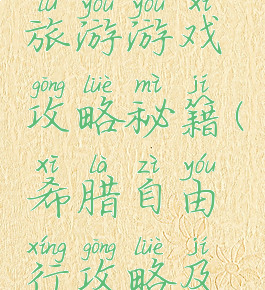 lǚ yóu yóu xì
旅游游戏
gōng lüè mì jí
攻略秘籍(
xī là zì yóu
希腊自由
xíng gōng lüè jí
行攻略及